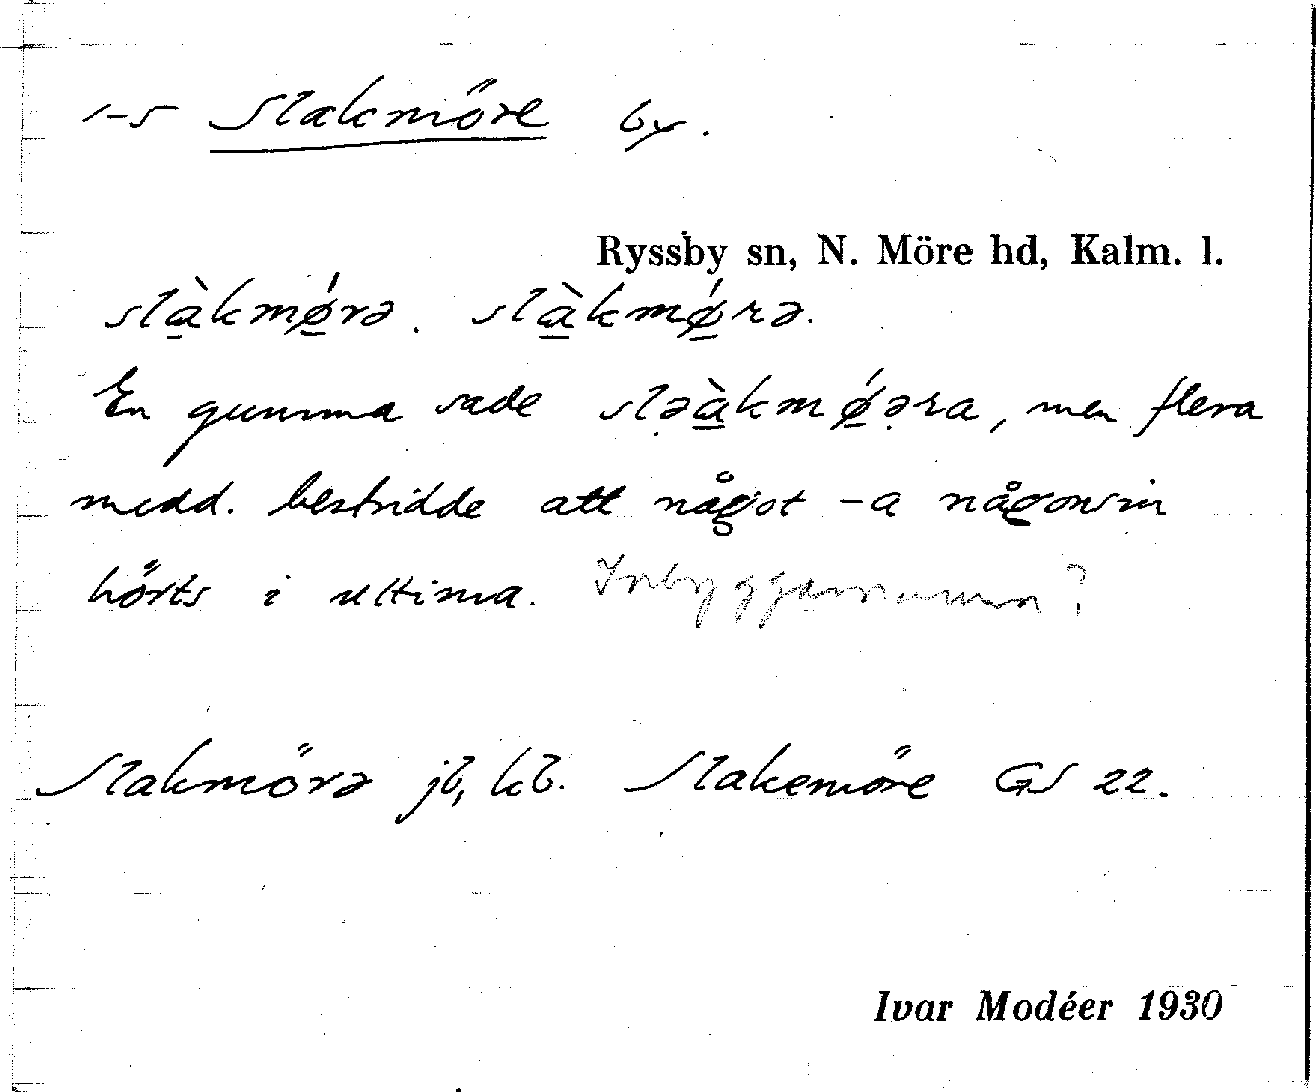 1-5 Slakmöre by.
Ryssby sn, N. Möre hd, Kalm. l.
slàkmǿrə. slàkmǿrə.
En gumma sade sləàkmǿəra, men flera
medd. bestridde att något -a någonsin
hörts i ultima. Inbyggarnamn?
Slakmöra jb, kb. Slakemöre GS 22.
Ivar Modéer 1930